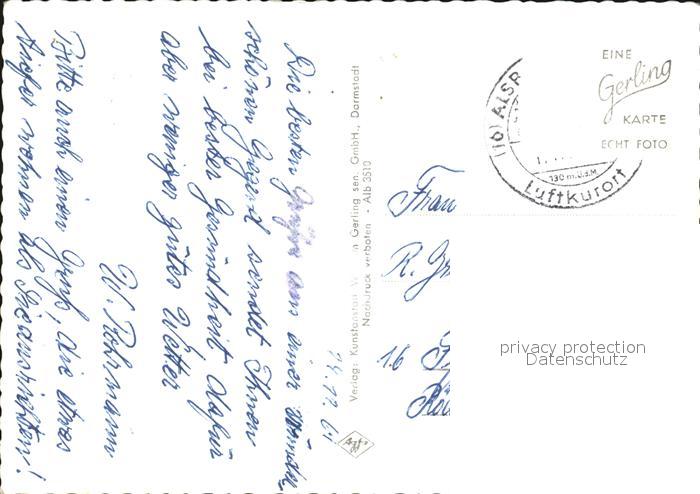 24.12.61
Die besten Grüße aus einer wunder
schönen Gegend sendet Ihnen
bei bester Gesundheit dafür
aber weniger gutes Wetter
W. Rohrmann
Bitte auch einen Gruß, die etwas
tiefer wohnen als
Verlag: Kunstanstalt Gerling sen. GmbH., Darmstadt
Nachdruck verboten - Alb 3510
Agfa
EINE
Gerling
KARTE
ECHT FOTO
(16) ALSB
130 m.ü.d.M.
Luftkurort
Frau
R. G
16
privacy protection
Datenschutz